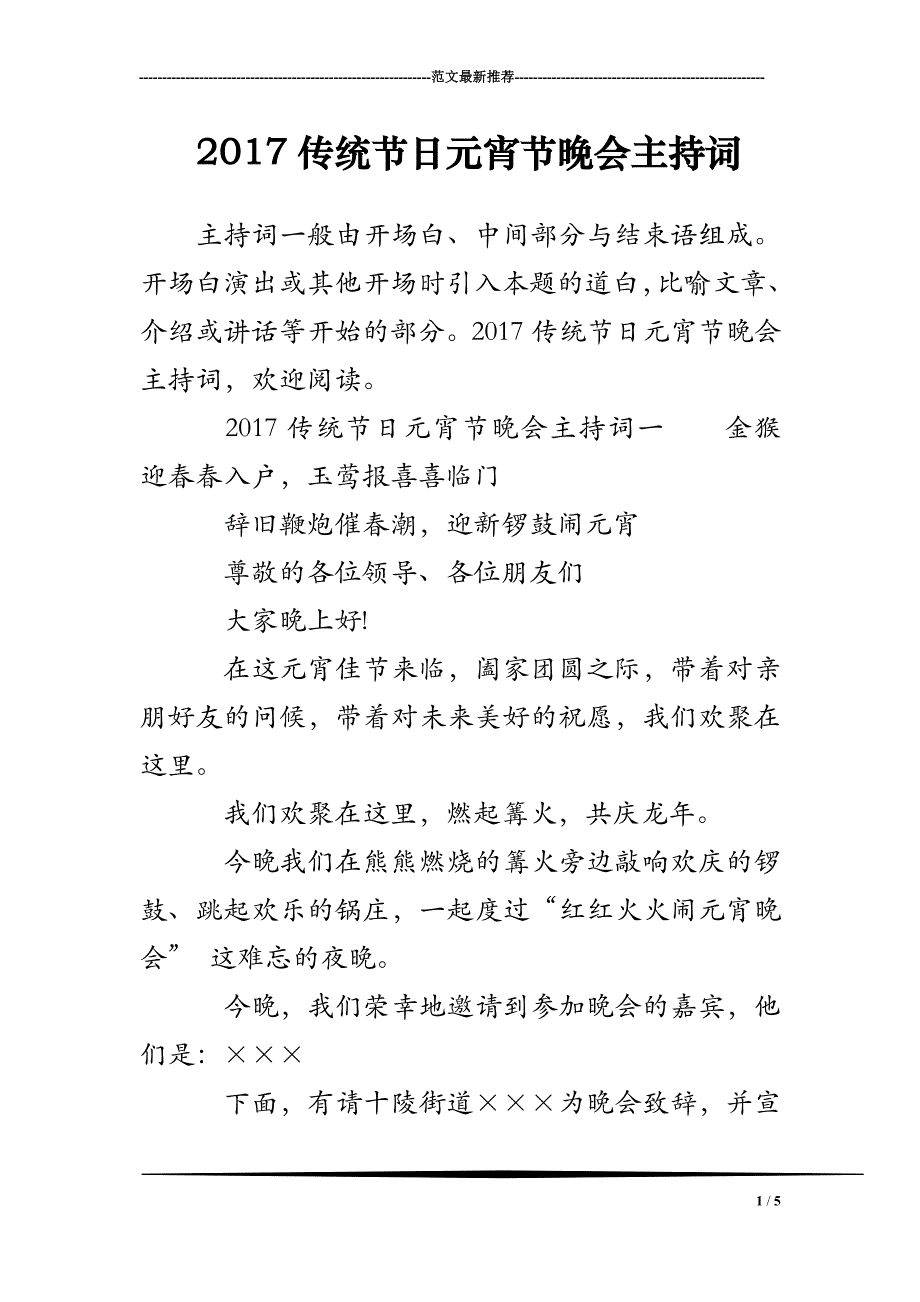 ---------------------------------------------------------------范文最新推荐------------------------------------------------------
2017 传统节日元宵节晚会主持词
主持词一般由开场白、中间部分与结束语组成。
开场白演出或其他开场时引入本题的道白，比喻文章、
介绍或讲话等开始的部分。2017 传统节日元宵节晚会
主持词，欢迎阅读。
2017 传统节日元宵节晚会主持词一 金猴
迎春春入户，玉莺报喜喜临门
辞旧鞭炮催春潮，迎新锣鼓闹元宵
尊敬的各位领导、各位朋友们
大家晚上好!
在这元宵佳节来临，阖家团圆之际，带着对亲
朋好友的问候，带着对未来美好的祝愿，我们欢聚在
这里。
我们欢聚在这里，燃起篝火，共庆龙年。
今晚我们在熊熊燃烧的篝火旁边敲响欢庆的锣
鼓、跳起欢乐的锅庄，一起度过“红红火火闹元宵晚
会” 这难忘的夜晚。
今晚，我们荣幸地邀请到参加晚会的嘉宾，他
们是：×××
下面，有请十陵街道×××为晚会致辞，并宣
1 / 5